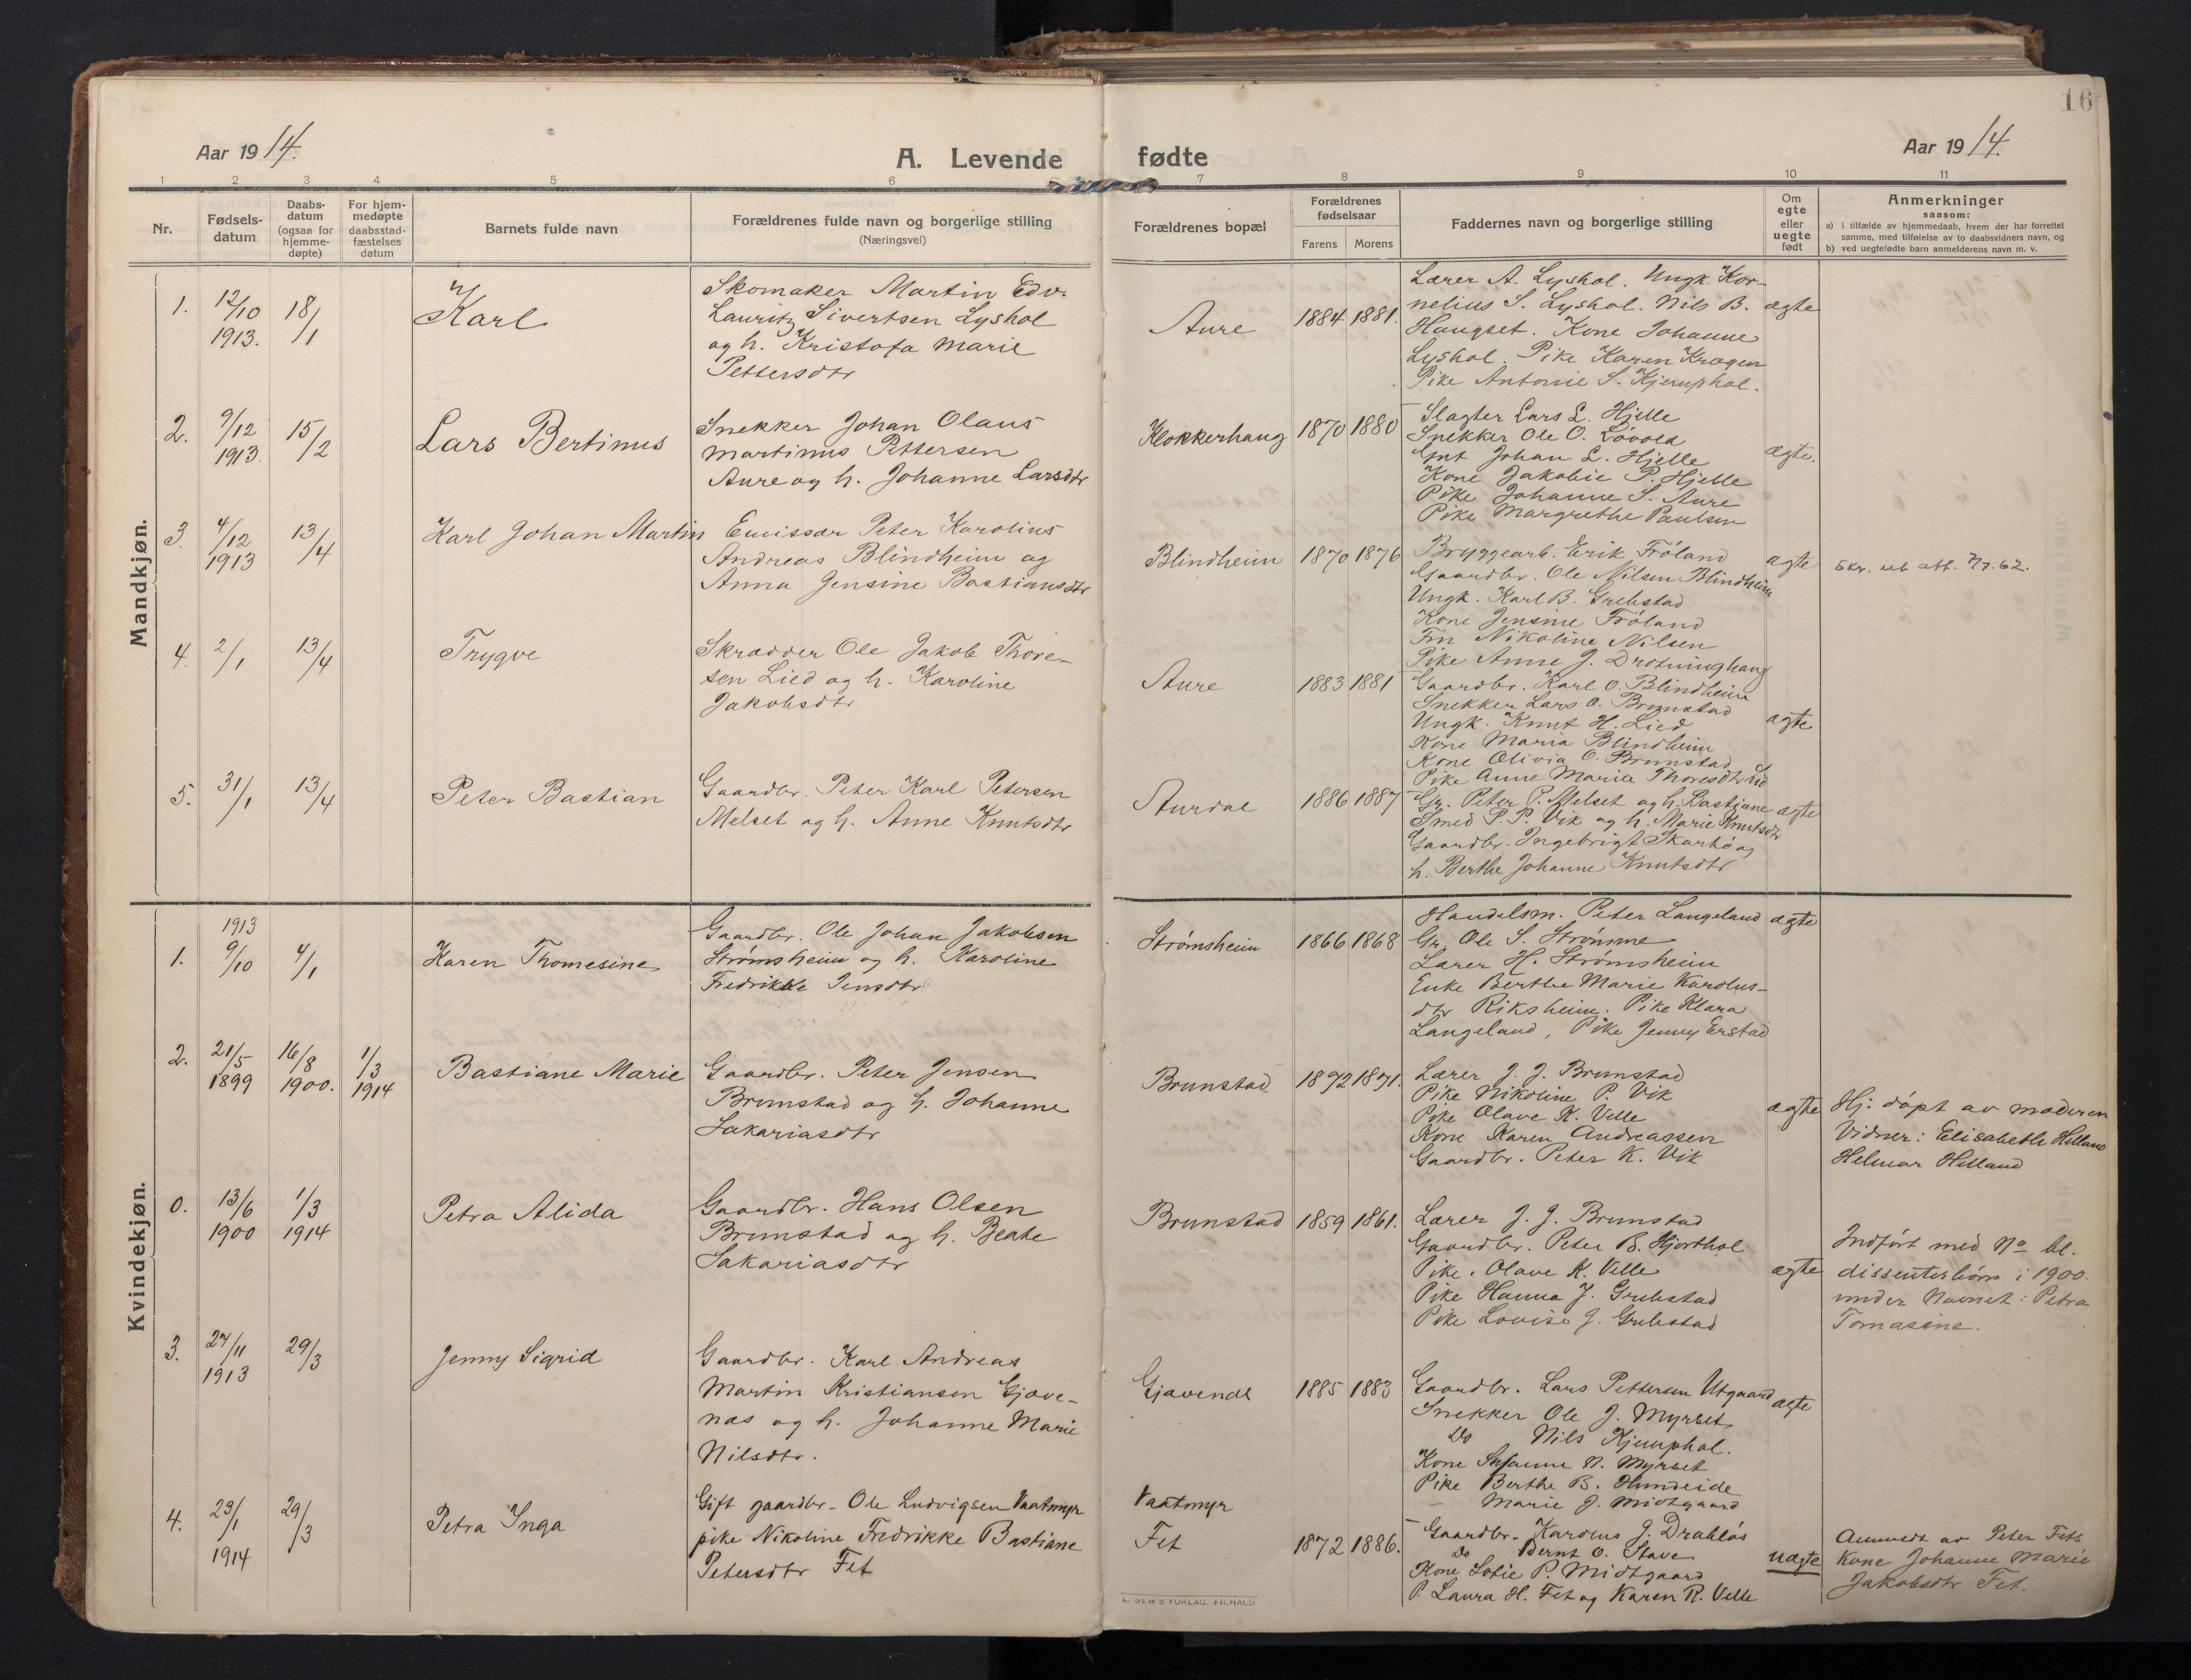 16
Aar 1914.
A. Levende fødte
Aar 1914.
1 2 3 4 5 6 7 8 9 10 11
Nr.
Fødsels-
datum
Daabs-
datum
(ogsaa for
hjemme-
døpte)
For hjem-
medøpte
daabsstad-
fæstelses
datum
Barnets fulde navn
Forældrenes fulde navn og borgerlige stilling
(Næringsvei)
Forældrenes bopæl
Forældrenes
fødselsaar
Farens Morens
Faddernes navn og borgerlige stilling
Om
egte
eller
uegte
født
Anmerkninger
saasom:
a) i tilfælde av hjemmedaab, hvem der har forrettet
samme, med tilføielse av to daabsvidners navn, og
b) ved uegtefødte barn anmelderens navn m. v.
Mandkjøn.
1.
12/10
1913.
18/1
Karl
Skomaker Martin Edv.
Lauritz Sivertsen Lyshol
og h. Kristofa Marie
Pettersdtr
Aure
1884 1881.
Lærer A. Lyshol. Ungk Kor-
nelius S. Lyshol. Nils B.
Haugset. Kone Johanne
Lyshol. Pike Karen Kragen
Pike Antonie S. Kjemphol.
ægte
2.
9/12
1913.
15/2
Lars Bertinus
Snekker Johan Olaus
Martinus Pettersen
Aure og h. Johanne Larsdtr
Klokkerhaug
1870 1880
Slagter Lars L. Hjelle
Snekker Ole O. Løvold
Gmt Johan L. Hjelle
Kone Jakobie P. Hjelle
Pike Johanne S. Aure
Pike Margrethe Paulsen
ægte.
3.
4/12
1913
13/4
Karl Johan Martin
Emissær Peter Karolius
Andreas Blindheim og
Anna Jensine Bastiansdtr
Blindheim
1870 1876
Bryggearb. Erik Frøland
Gaardbr. Ole Nilsen Blindheim
Ungk. Karl B. Grebstad
Kone Jensine Frøland
Frn Nikoline Nilsen
Pike Anne J. Drotninghaug
ægte
Skr. ut att. 7/7.62.
4.
2/1
13/4
Trygve
Skrædder Ole Jakob Thore-
sen Lied og h. Karoline
Jakobsdtr
Aure
1883 1881
Gaardbr. Karl O. Blindheim
Snekker Lars O. Brunstad
Ungk. Knut H. Lied
Kone Maria Blindheim
Kone Olivia O. Brunstad
Pike Anne Maria Thoresdtr Lid
ægte
5.
31/1
13/4
Peter Bastian
Gaardbr. Peter Karl Petersen
Melset og h. Anne Knutsdtr
Aurdal
1886 1887
Gr. Peter P. Melset og h. Bastiane
Smed P. P. Vik og h. Marie Knutsdtr
Gaardbr. Ingebrigt Skarbø og
h. Berthe Johanne Knutsdtr
ægte
Kvindekjøn.
1.
1913
9/10
4/1
Karen Thomesine
Gaardbr. Ole Johan Jakobsen
Strømsheim og h. Karoline
Fredrikke Jensdtr
Strømsheim
1866 1868
Handelsm. Peter Langeland
Gr. Ole S. Strømme
Lærer H. Strømsheim
Enke Berthe Marie Karolus-
dtr Riksheim. Pike Klara
Langeland, Pike Jenny Erstad
ægte
2.
21/5
1899
16/8
1900.
1/3
1914
Bastiane Marie
Gaardbr. Peter Jensen
Brunstad og h. Johanne
Sakariasdtr
Brunstad
1872 1871.
Lærer J. J. Brunstad
Pike Nikoline P. Vik
Pike Olave K. Velle
Kone Karen Andreassen
Gaardbr. Peter K. Vik
ægte
Hj: døpt av moderen
Vidner: Elisabeth Helland
Helmar Helland
0.
13/6
1900
1/3
1914
Petra Alida
Gaardbr. Hans Olsen
Brunstad og h. Beate
Sakariasdtr
Brunstad
1859 1861.
Lærer J. J. Brunstad
Gaardbr. Peter B. Hjorthol
Pike. Olave K. Velle
Pike Hanna J. Grebstad
Pike Lovise J. Grebstad
ægte
Indført med No bl.
dissenterbørn i 1900.
under Navnet: Petra
Tomasine.
3.
27/11
1913
29/3
Jenny Sigrid
Gaardbr. Karl Andreas
Martin Kristiansen Gjøve-
næs og h. Johanne Marie
Nilsdtr.
Gjævenes
1885 1883
Gaardbr. Lars Pettersen Utgaard
Snekker Ole J. Myrset
Do Nils Kjemphol.
Kone Susanne N. Myrset
Pike Berthe B. Hundeide
— Marie J. Midtgaard
ægte
4.
23/1
1914
29/3
Petra Inga
Gift gaardbr. Ole Ludvigsen Vaatmyr
pike Nikoline Fredrikke Bastiane
Petersdtr Fet
Vaatmyr
Fet
1872 1886.
Gaardbr. Karolus J. Drabløs
Do Bernt O. Stave
Kone Lotie P. Midtgaard
P. Laura H. Fet og Karen R. Velle
uægte
Anmeldt av Peter Fets
Kone Johanne Marie
Jakobsdtr Fet.
E. SEM'S FORLAG. FR.HALD